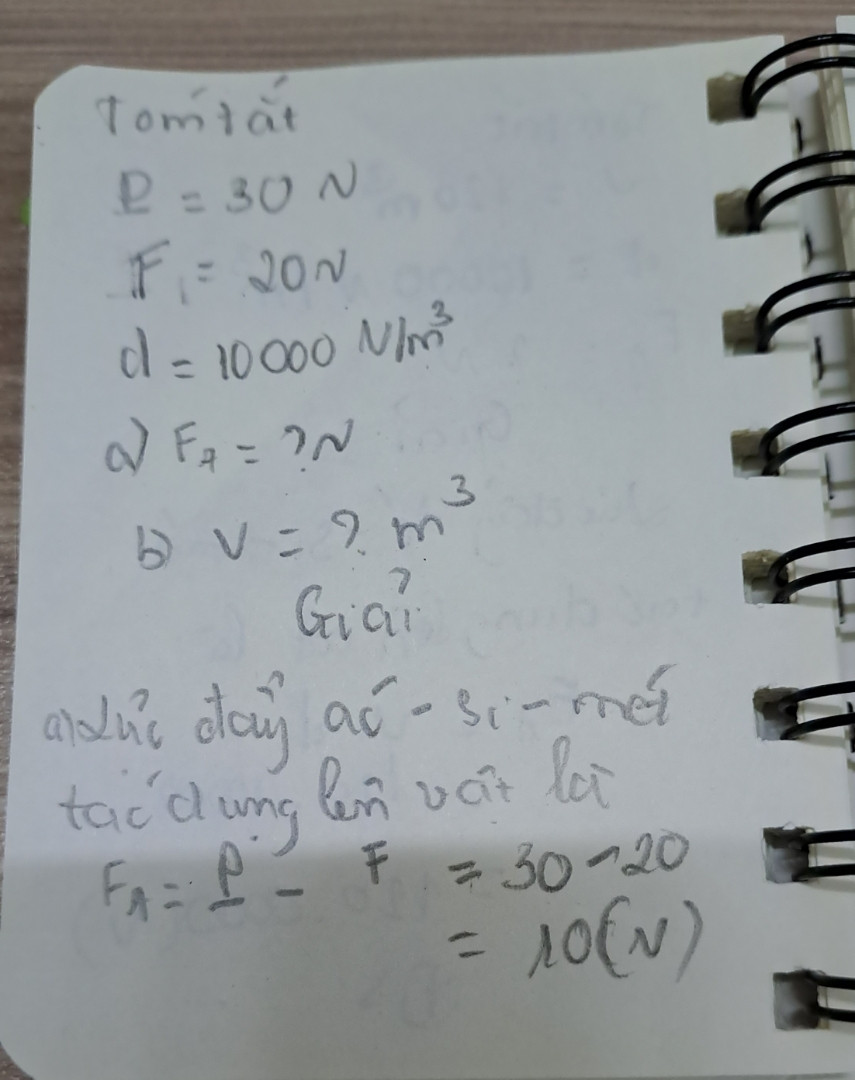 Tóm tắt
P = 30 N
F₁ = 20N
d = 10000 N/m³
a) F_A = ? N
b) V = ? m³
Giải
a) Lực đẩy ác - si - mét
tác dụng lên vật là
F_A = P - F = 30 - 20
= 10 (N)